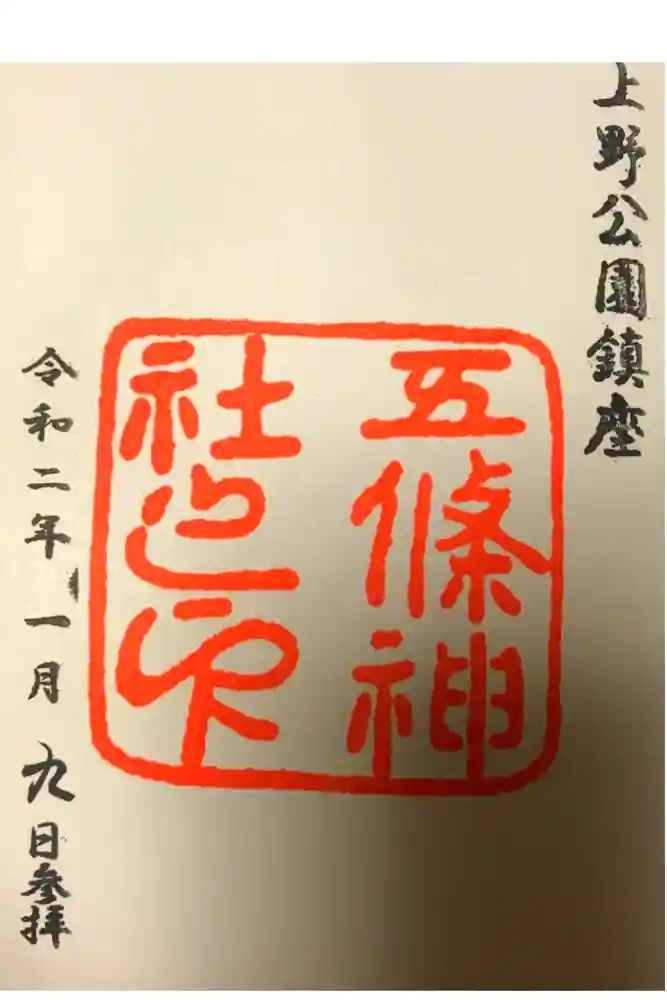 上野公園鎮座
五條神
社之印
令和二年一月九日参拝